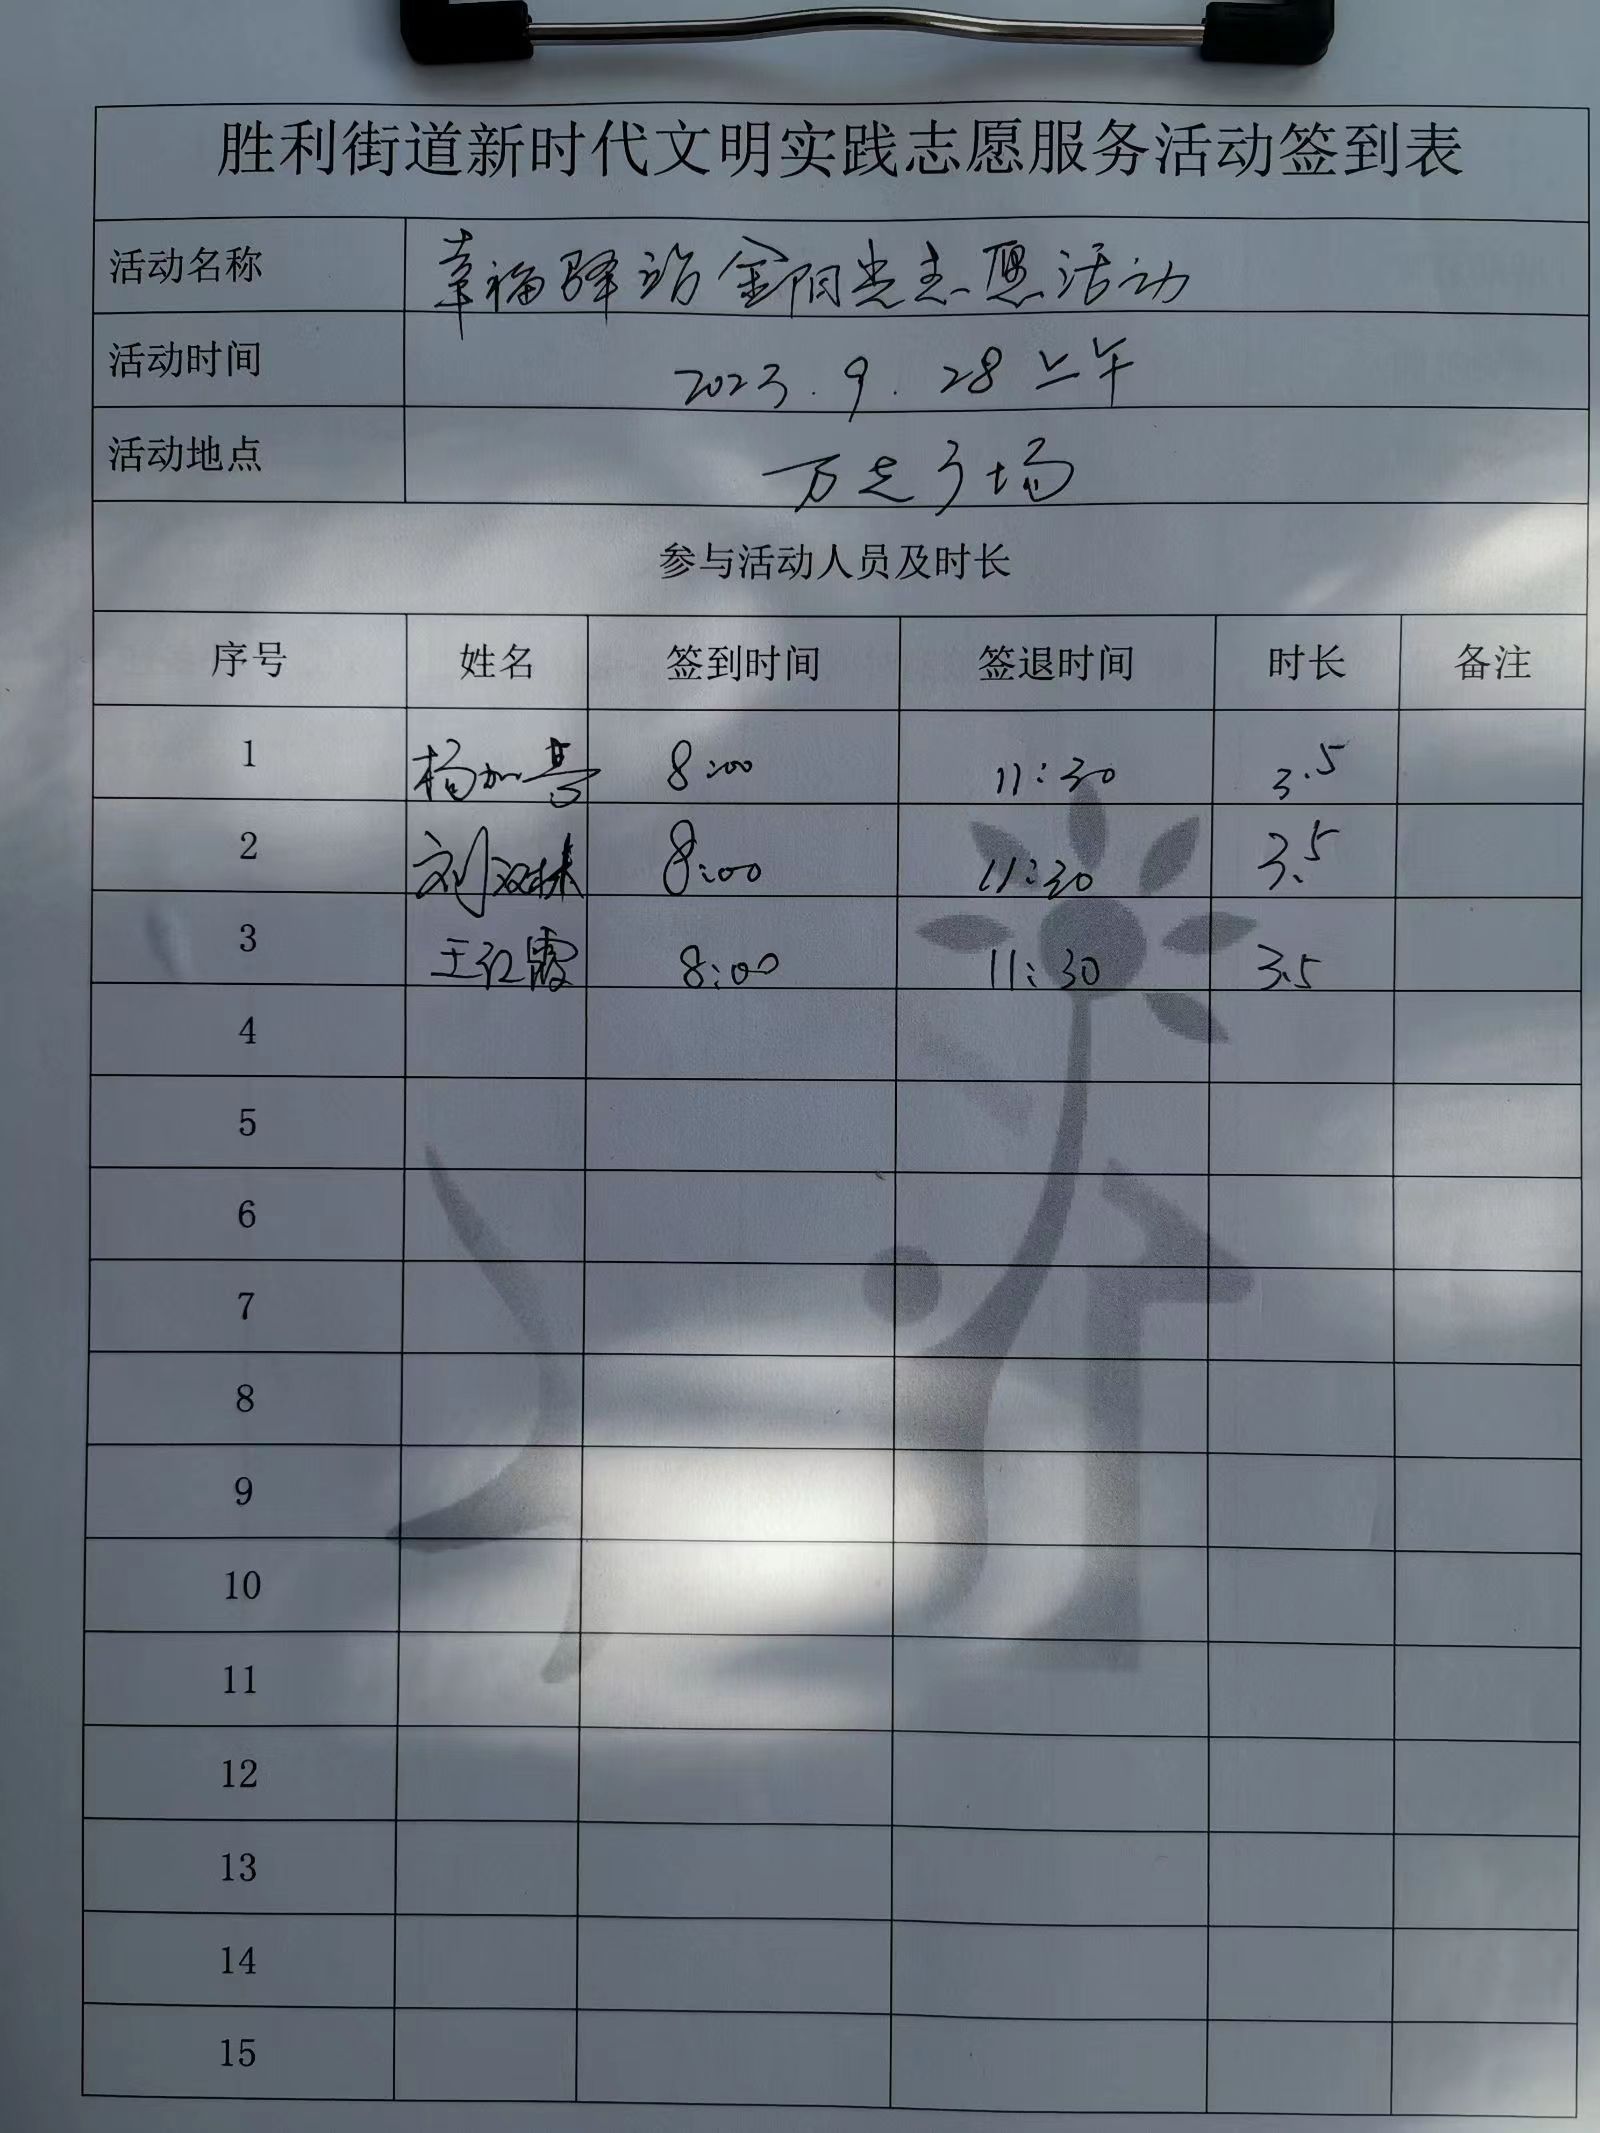 胜利街道新时代文明实践志愿服务活动签到表
活动名称 幸福驿站金阳光志愿活动
活动时间 2023.9.28上午
活动地点 万达广场
参与活动人员及时长
序号 姓名 签到时间 签退时间 时长 备注
1 杨加喜 8:00 11:30 3.5
2 刘双林 8:00 11:30 3.5
3 王红霞 8:00 11:30 3.5
4
5
6
7
8
9
10
11
12
13
14
15